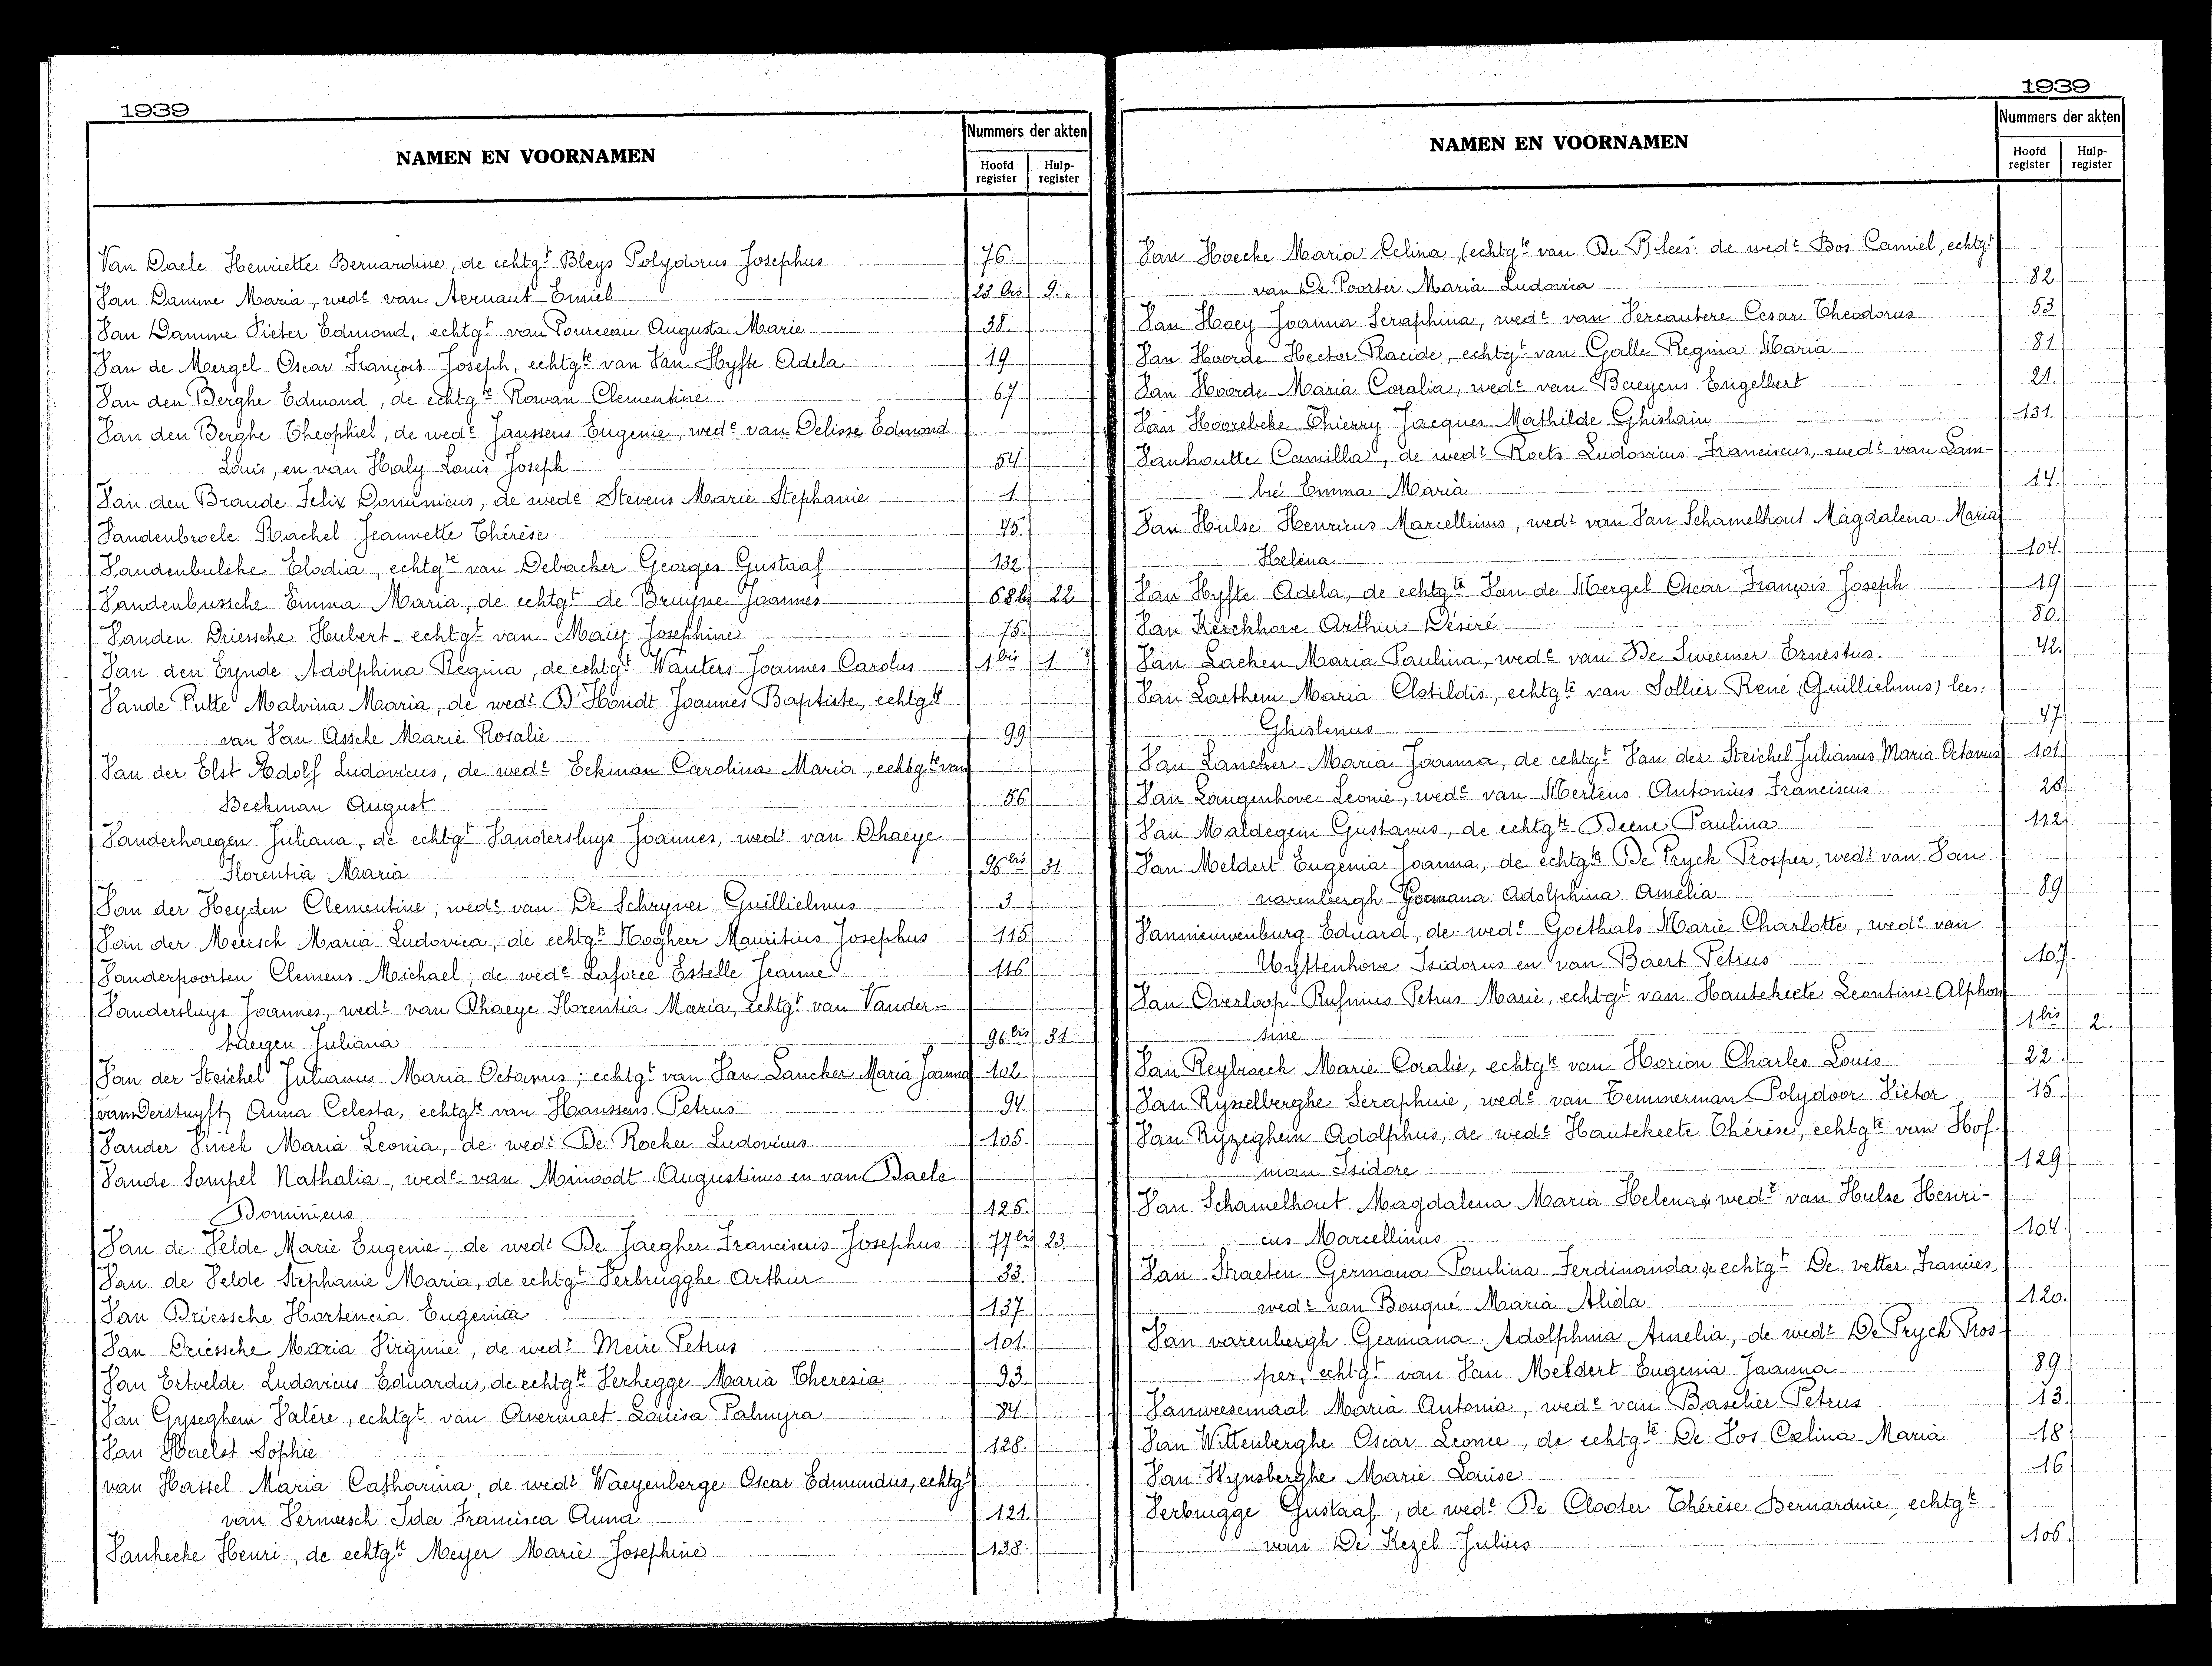 1939
NAMEN EN VOORNAMEN
Nummers der akten
Hoofd register
Hulp-register
Van Daele Henriette Bernardine, de echtgt Bleys Polydorus Josephus 76.
Van Damme Maria, wede van Aernaut Emiel 23 bis 9.
Van Damme Pieter Edmond, echtgt van Pourceau Augusta Marie 38.
Van de Mergel Oscar François Joseph, echtgte van Van Hyfte Adela 19
Van den Berghe Edmond, de echtgte Rowan Clementine 67
Van den Berghe Theophiel, de wede Janssens Eugenie, wede van Delisse Edmond
Louis, en van Haly Louis Joseph 54
Van den Brande Felix Dominicus, de wede Stevens Marie Stephanie 1
Vandenbroele Rachel Jeannette Thérèse 45.
Vandenbulcke Elodia, echtgte van Debacker Georges Gustaaf 132
Vandenbussche Emma Maria, de echtgt de Bruyne Joannes 68bis 22
Vanden Driessche Hubert - echtgt van Maiy Josephine 75.
Van den Eynde Adolphina Regina, de echtgt Wauters Joannes Carolus 1bis 1.
Vande Putte Malvina Maria, de wedr D'Hondt Joannes Baptiste, echtgte
van Van Assche Marie Rosalie 99
Van der Elst Adolf Ludovicus, de wede Eekman Carolina Maria, echtgte van
Beekman August 56
Vanderhaegen Juliana, de echtgt Vandersluys Joannes, wedr van Dhaeye
Florentia Maria 96bis 31
Van der Heyden Clementine, wede van De Schryver Guillielmus 3
Van der Meersch Maria Ludovica, de echtgt Mogheer Mauritius Josephus 115
Vanderpoorten Clemens Michael, de wede Laforce Estelle Jeanne 116
Vandersluys Joannes, wedr van Dhaeye Florentia Maria, echtgt van Vander-
haegen Juliana 96bis 31.
Van der Steichel Julianus Maria Octavus; echtgt van Van Lancker Maria Joanna 102
vanDerstuyft Anna Celesta, echtgte van Hanssens Petrus 94.
Vander Vinck Maria Leonia, de wedr De Rocker Ludovicus 105.
Vande Sompel Nathalia, wede van Minoodt Augustinus en van Daele
Dominicus 125.
Van de Velde Marie Eugenie, de wedr De Jaegher Franciscus Josephus 77bis 23.
Van de Velde Stephanie Maria, de echtgt Verbrugghe Arthur 33.
Van Driessche Hortencia Eugenia 137
Van Driessche Maria Virginie, de wedr Meire Petrus 101.
Van Ertvelde Ludovicus Eduardus, de echtgte Verhegge Maria Theresia 93.
Van Gyseghem Valére, echtgt van Overmaet Louisa Palmyra 84
Van Haelst Sophie 128.
van Hassel Maria Catharina, de wedr Waeyenberge Oscar Edmundus, echtgt
van Vermeesch Ida Francisca Anna 121
Vanhecke Henri, de echtgte Meyer Marie Josephine 138.
1939
NAMEN EN VOORNAMEN
Nummers der akten
Hoofd register
Hulp-register
Van Hoecke Maria Celina, (echtgte van De P) lees: de wedr Bos Camiel, echtgt
van De Poorter Maria Ludovica 82
Van Hoey Joanna Seraphina, wede van Vercautere Cesar Theodorus 53
Van Hoorde Hector Placide, echtgt van Galle Regina Maria 81
Van Hoorde Maria Coralia, wede van Baeyens Engelbert 21.
Van Hoorebeke Thierry Jacques Mathilde Ghislain 131
Vanhoutte Camilla, de wedr Roets Ludovicus Franciscus, wedr van Lam-
bré Emma Maria 14.
Van Hulse Henricus Marcellinus, wedr van Van Schamelhout Magdalena Maria
Helena 104.
Van Hyfte Adela, de echtgte Van de Mergel Oscar François Joseph 19
Van Kerckhove Arthur Désiré 80.
Van Laeken Maria Paulina, wede van De Sweemer Ernestus. 42.
Van Laethem Maria Clotildis, echtgte van Sollier René (Guillielmus) lees:
Ghislenus 47
Van Lancker Maria Joanna, de echtgt Van der Steichel Julianus Maria Octavus 101
Van Langenhove Leonie, wede van Mertens Antonius Franciscus 28
Van Maldegem Gustavus, de echtgte Deene Paulina 112
Van Meldert Eugenia Joanna, de echtgt De Pryck Prosper, wedr van Van
varenbergh Germana Adolphina Amelia 89
Vannieuwenburg Eduard, de wede Goethals Marie Charlotte, wede van
Uyttenhove Isidorus en van Baert Petrus 107.
Van Overloop Rufinus Petrus Marie, echtgt van Hautekeete Leontine Alphon
sine 1bis 2.
Van Reybroeck Marie Coralie, echtgte van Horion Charles Louis 22.
Van Rysselberghe Seraphine, wede van Temmerman Polydoor Victor 15.
Van Ryzeghem Adolphus, de wede Hautekeete Thérèse, echtgte van Hof-
man Isidore 129
Van Schamelhout Magdalena Maria Helena, wedr van Hulse Henri-
cus Marcellinus 104.
Van Straeten Germana Paulina Ferdinanda de echtgt De vetter Francies,
wedr van Bouqué Maria Alida 120.
Van varenbergh Germana Adolphina Amelia, de wedr De Pryck Pros-
per, echtgt van Van Meldert Eugenia Joanna 89
Vanweesemaal Maria Antonia, wede van Baselier Petrus 13.
Van Wittenberghe Oscar Leonce, de echtgte De Vos Celina Maria 18
Van Wynsberghe Marie Louise 16
Verbrugge Gustaaf, de wede De Clooter Thérèse Bernardine, echtgte
van De Kezel Julius 106.